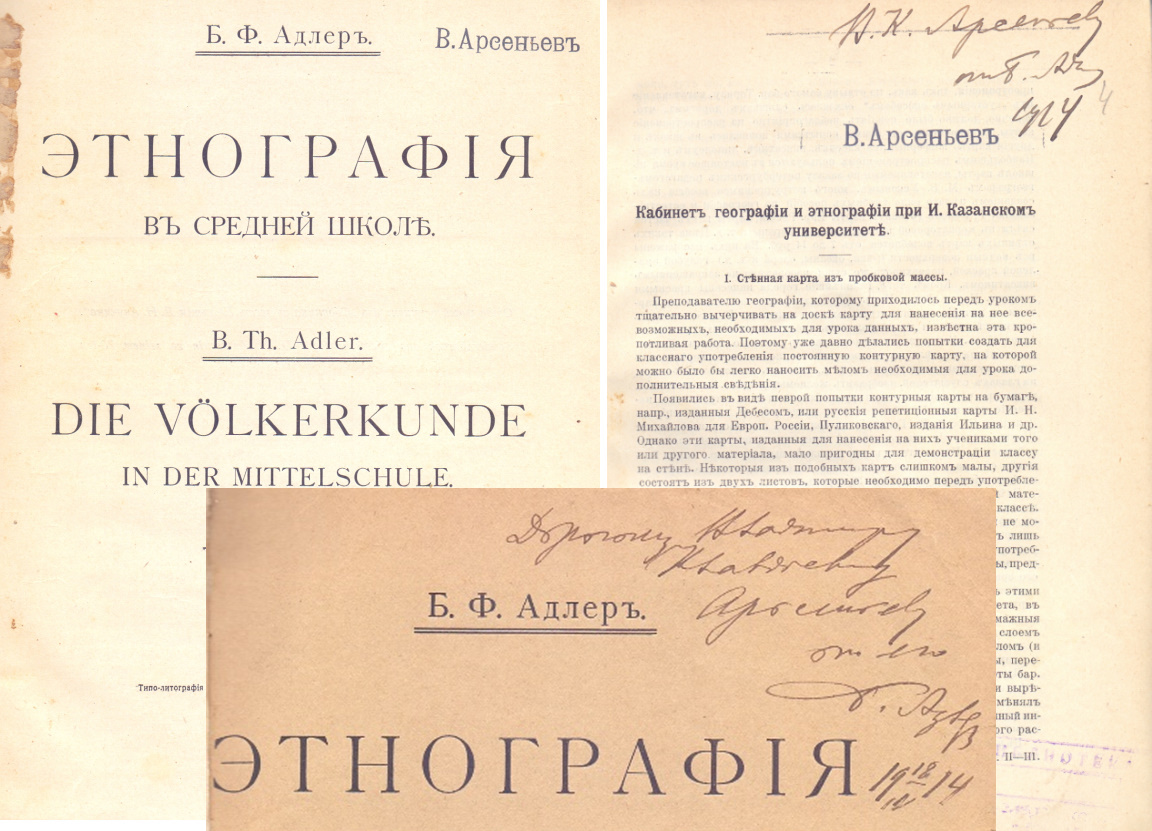 Б. Ф. Адлеръ.
В.Арсеньевъ
ЭТНОГРАФІЯ
ВЪ СРЕДНЕЙ ШКОЛѢ.
B. Th. Adler.
DIE VÖLKERKUNDE
IN DER MITTELSCHULE.
Типо-литографія
В. К. Арсеньеву
от Б. Ад
1914
В.Арсеньевъ
Кабинетъ географіи и этнографіи при И. Казанскомъ
университетѣ.
I. Стѣнная карта изъ пробковой массы.
Преподавателю географіи, которому приходилось передъ урокомъ
тщательно вычерчивать на доскѣ карту для нанесенія на нее все-
возможныхъ, необходимыхъ для урока данныхъ, извѣстна эта кро-
потливая работа. Поэтому уже давно дѣлались попытки создать для
класснаго употребленія постоянную контурную карту, на которой
можно было бы легко наносить мѣломъ необходимыя для урока до-
полнительныя свѣдѣнія.
Появились въ видѣ певрой попытки контурныя карты на бумагѣ,
напр., изданныя Дебесомъ, или русскія репетиціонныя карты И. Н.
Михайлова для Европ. Россіи, Пуликовскаго, изданія Ильина и др.
Однако эти карты, изданныя для нанесенія на нихъ учениками того
или другого матеріала, мало пригодны для демонстраціи классу
на стѣнѣ. Нѣкоторыя изъ подобныхъ картъ слишкомъ малы, другія
состоятъ изъ двухъ листовъ, которые необходимо передъ употребле-
мате-
классѣ.
не мо-
лишь
употреб-
пред-
этими
ета, въ
мажныя
слоемъ
ломъ (и
пере-
ты бар.
и вырѣ-
мѣнялъ
ный ин-
ого рас-
II—III.
Дорогому Владимиру
Клавдіевичу
Арсеньеву
от его
Б. Ф. Адлеръ.
Б. Адлера
ЭТНОГРАФІЯ
19 18/IV 14